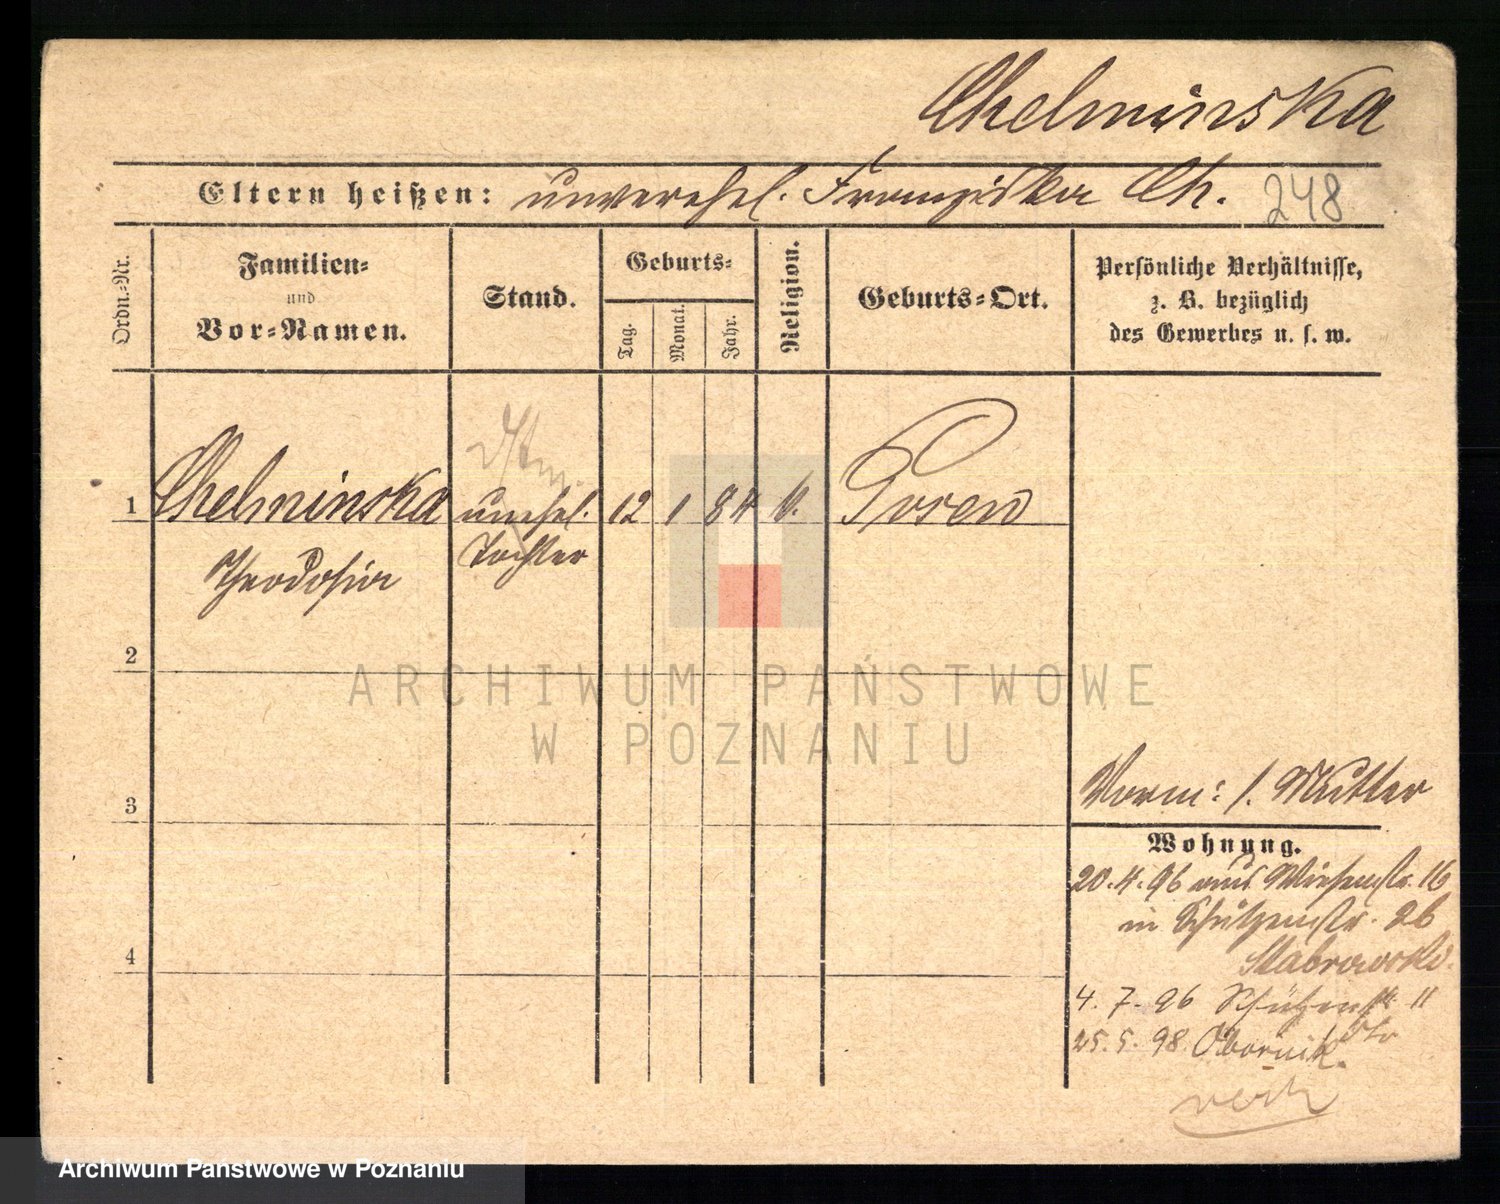 Chelminska
Eltern heißen: unverehel. Franziska Ch. 248
Ordn.-Nr.
Familien-
und
Vor-Namen.
Stand.
Geburts-
Tag.
Monat.
Jahr.
Religion.
Geburts-Ort.
Persönliche Verhältnisse,
z. B. bezüglich
des Gewerbes u. s. w.
1 Chelminska unehel. 12 1 84 k. Posen
Theodosia Tochter
2
3
4
Vorm: s. Mutter
Wohnung.
20.4.96 aus Wiesenstr. 16
in Schützenstr. 26
Stabrowski.
4.7.96 Schützenstr 11
25.5.98 Obornik.
verh
ARCHIWUM PAŃSTWOWE
W POZNANIU
Archiwum Państwowe w Poznaniu